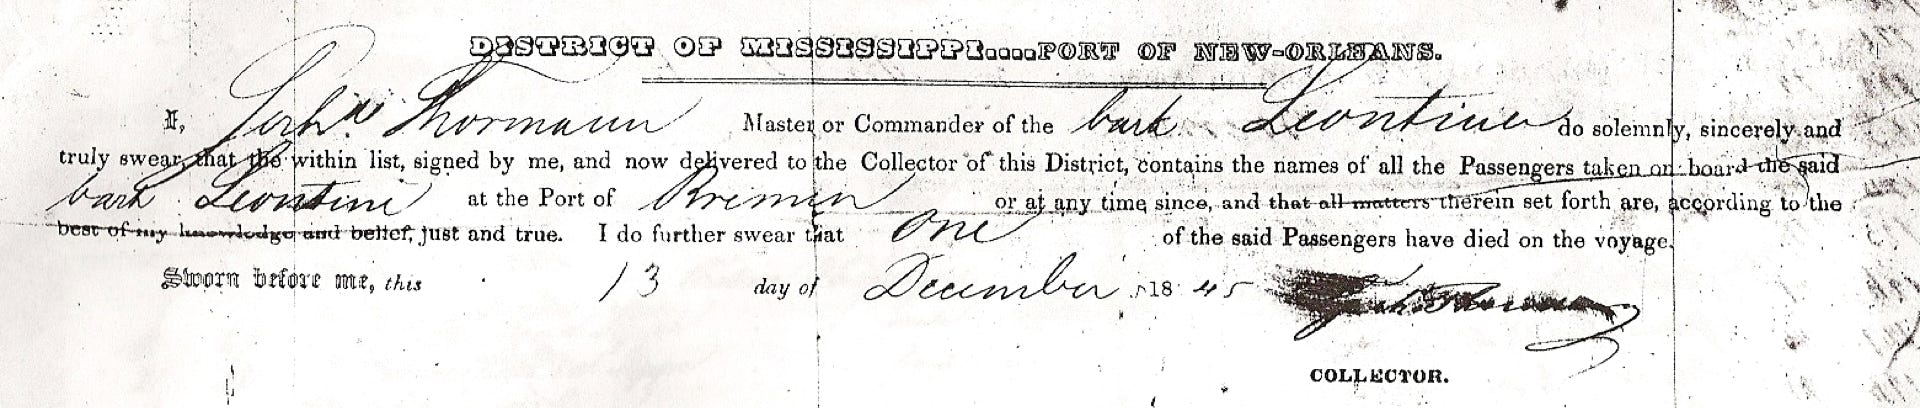 DISTRICT OF MISSISSIPPI....PORT OF NEW-ORLEANS.
I, Gerh.d Thormann Master or Commander of the bark Leontine do solemnly, sincerely and
truly swear, that the within list, signed by me, and now delivered to the Collector of this District, contains the names of all the Passengers taken on board the said
bark Leontine at the Port of Bremen or at any time since, and that all matters therein set forth are, according to the
best of my knowledge and belief, just and true. I do further swear that one of the said Passengers have died on the voyage.
Sworn before me, this 13 day of December 1845 Thormann
COLLECTOR.